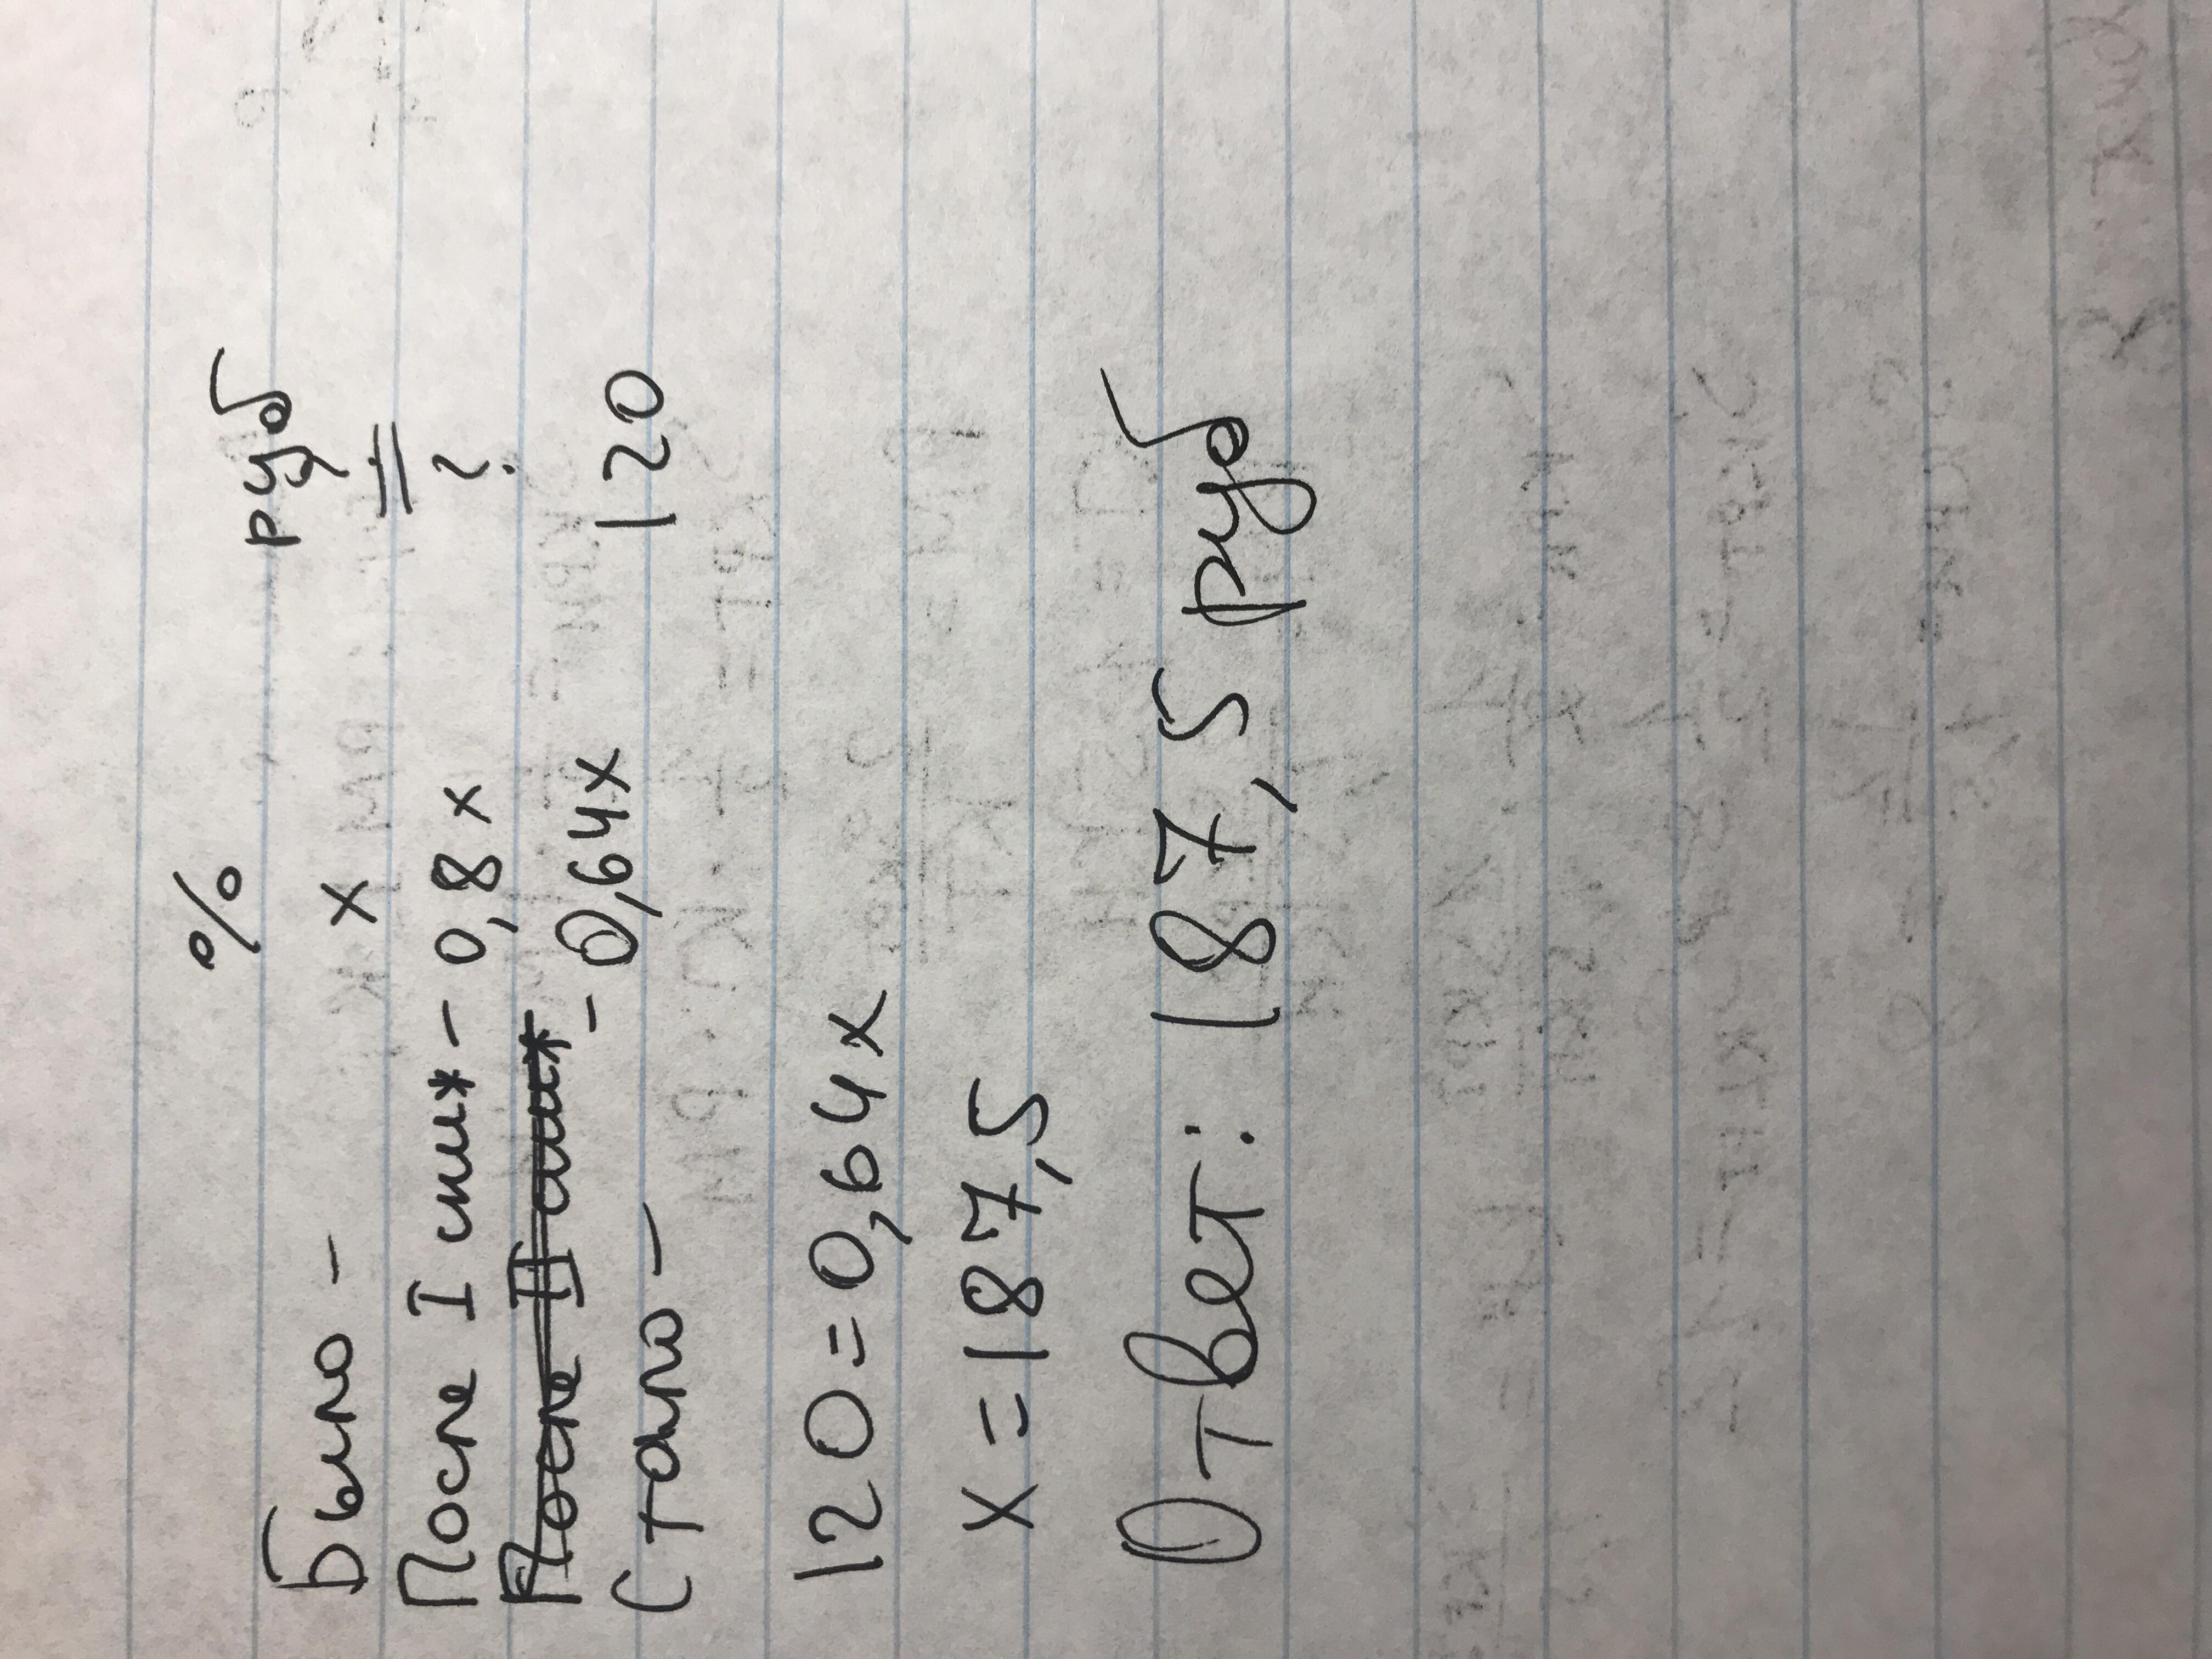 % руб
Было - х =
После I сниж - 0,8 х ?
После II сниж - 0,64х
Стало - 120
120 = 0,64 х
х = 187,5
Ответ: 187,5 руб